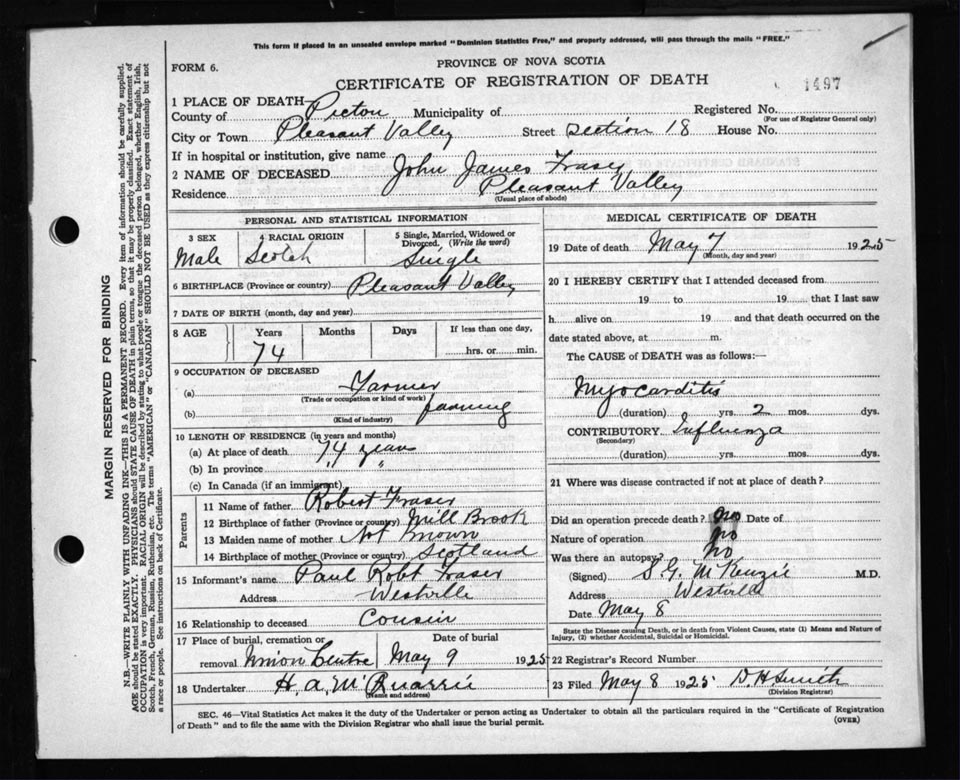 This form if placed in an unsealed envelope marked "Dominion Statistics Free," and properly addressed, will pass through the mails "FREE."
FORM 6.
PROVINCE OF NOVA SCOTIA
CERTIFICATE OF REGISTRATION OF DEATH
1497
1 PLACE OF DEATH—
County of Pictou Municipality of Registered No.
(For use of Registrar General only)
City or Town Pleasant Valley Street Section 18 House No.
If in hospital or institution, give name
2 NAME OF DECEASED John James Fraser
Residence Pleasant Valley
(Usual place of abode)
PERSONAL AND STATISTICAL INFORMATION
3 SEX 4 RACIAL ORIGIN 5 Single, Married, Widowed or Divorced, (Write the word)
Male Scotch Single
6 BIRTHPLACE (Province or country) Pleasant Valley
7 DATE OF BIRTH (month, day and year)
8 AGE Years Months Days If less than one day,
74 hrs. or min.
9 OCCUPATION OF DECEASED
(a) Farmer
(Trade or occupation or kind of work)
(b) farming
(Kind of industry)
10 LENGTH OF RESIDENCE (in years and months)
(a) At place of death 74 years
(b) In province " "
(c) In Canada (if an immigrant)
Parents
11 Name of father Robert Fraser
12 Birthplace of father (Province or country) Mill Brook
13 Maiden name of mother Not Known
14 Birthplace of mother (Province or country) Scotland
15 Informant's name Paul Robt Fraser
Address Westville
16 Relationship to deceased Cousin
17 Place of burial, cremation or removal Union Centre
Date of burial
May 9 1925
18 Undertaker H. A. McQuarrie
(Name and address)
MEDICAL CERTIFICATE OF DEATH
19 Date of death May 7 1925
(Month, day and year)
20 I HEREBY CERTIFY that I attended deceased from
19 to 19 that I last saw
h alive on 19 and that death occurred on the
date stated above, at m.
The CAUSE of DEATH was as follows:—
Myocarditis
(duration) yrs. 2 mos. dys.
CONTRIBUTORY Influenza
(Secondary)
(duration) yrs. mos. dys.
21 Where was disease contracted if not at place of death?
Did an operation precede death? no Date of
Nature of operation no
Was there an autopsy? no
(Signed) S. G. McKenzie M.D.
Address Westville
Date May 8
State the Disease causing Death, or in death from Violent Causes, state (1) Means and Nature of
Injury, (2) whether Accidental, Suicidal or Homicidal.
22 Registrar's Record Number
23 Filed May 8 1925 D. H. Smith
(Division Registrar)
SEC. 46—Vital Statistics Act makes it the duty of the Undertaker or person acting as Undertaker to obtain all the particulars required in the "Certificate of Registration
of Death" and to file the same with the Division Registrar who shall issue the burial permit.
(OVER)
MARGIN RESERVED FOR BINDING
N.B.—WRITE PLAINLY WITH UNFADING INK—THIS IS A PERMANENT RECORD. Every item of information should be carefully supplied.
AGE should be stated EXACTLY. PHYSICIANS should STATE CAUSE OF DEATH in plain terms, so that it may be properly classified. Exact statement of
OCCUPATION is very important. RACIAL ORIGIN will be described by stating to what people or tongue the deceased person belonged, whether English, Irish,
Scotch, French, German, Russian, Ruthenian, etc. The terms "AMERICAN" or "CANADIAN" SHOULD NOT BE USED as they express citizenship but not
a race or people. See instructions on back of Certificate.